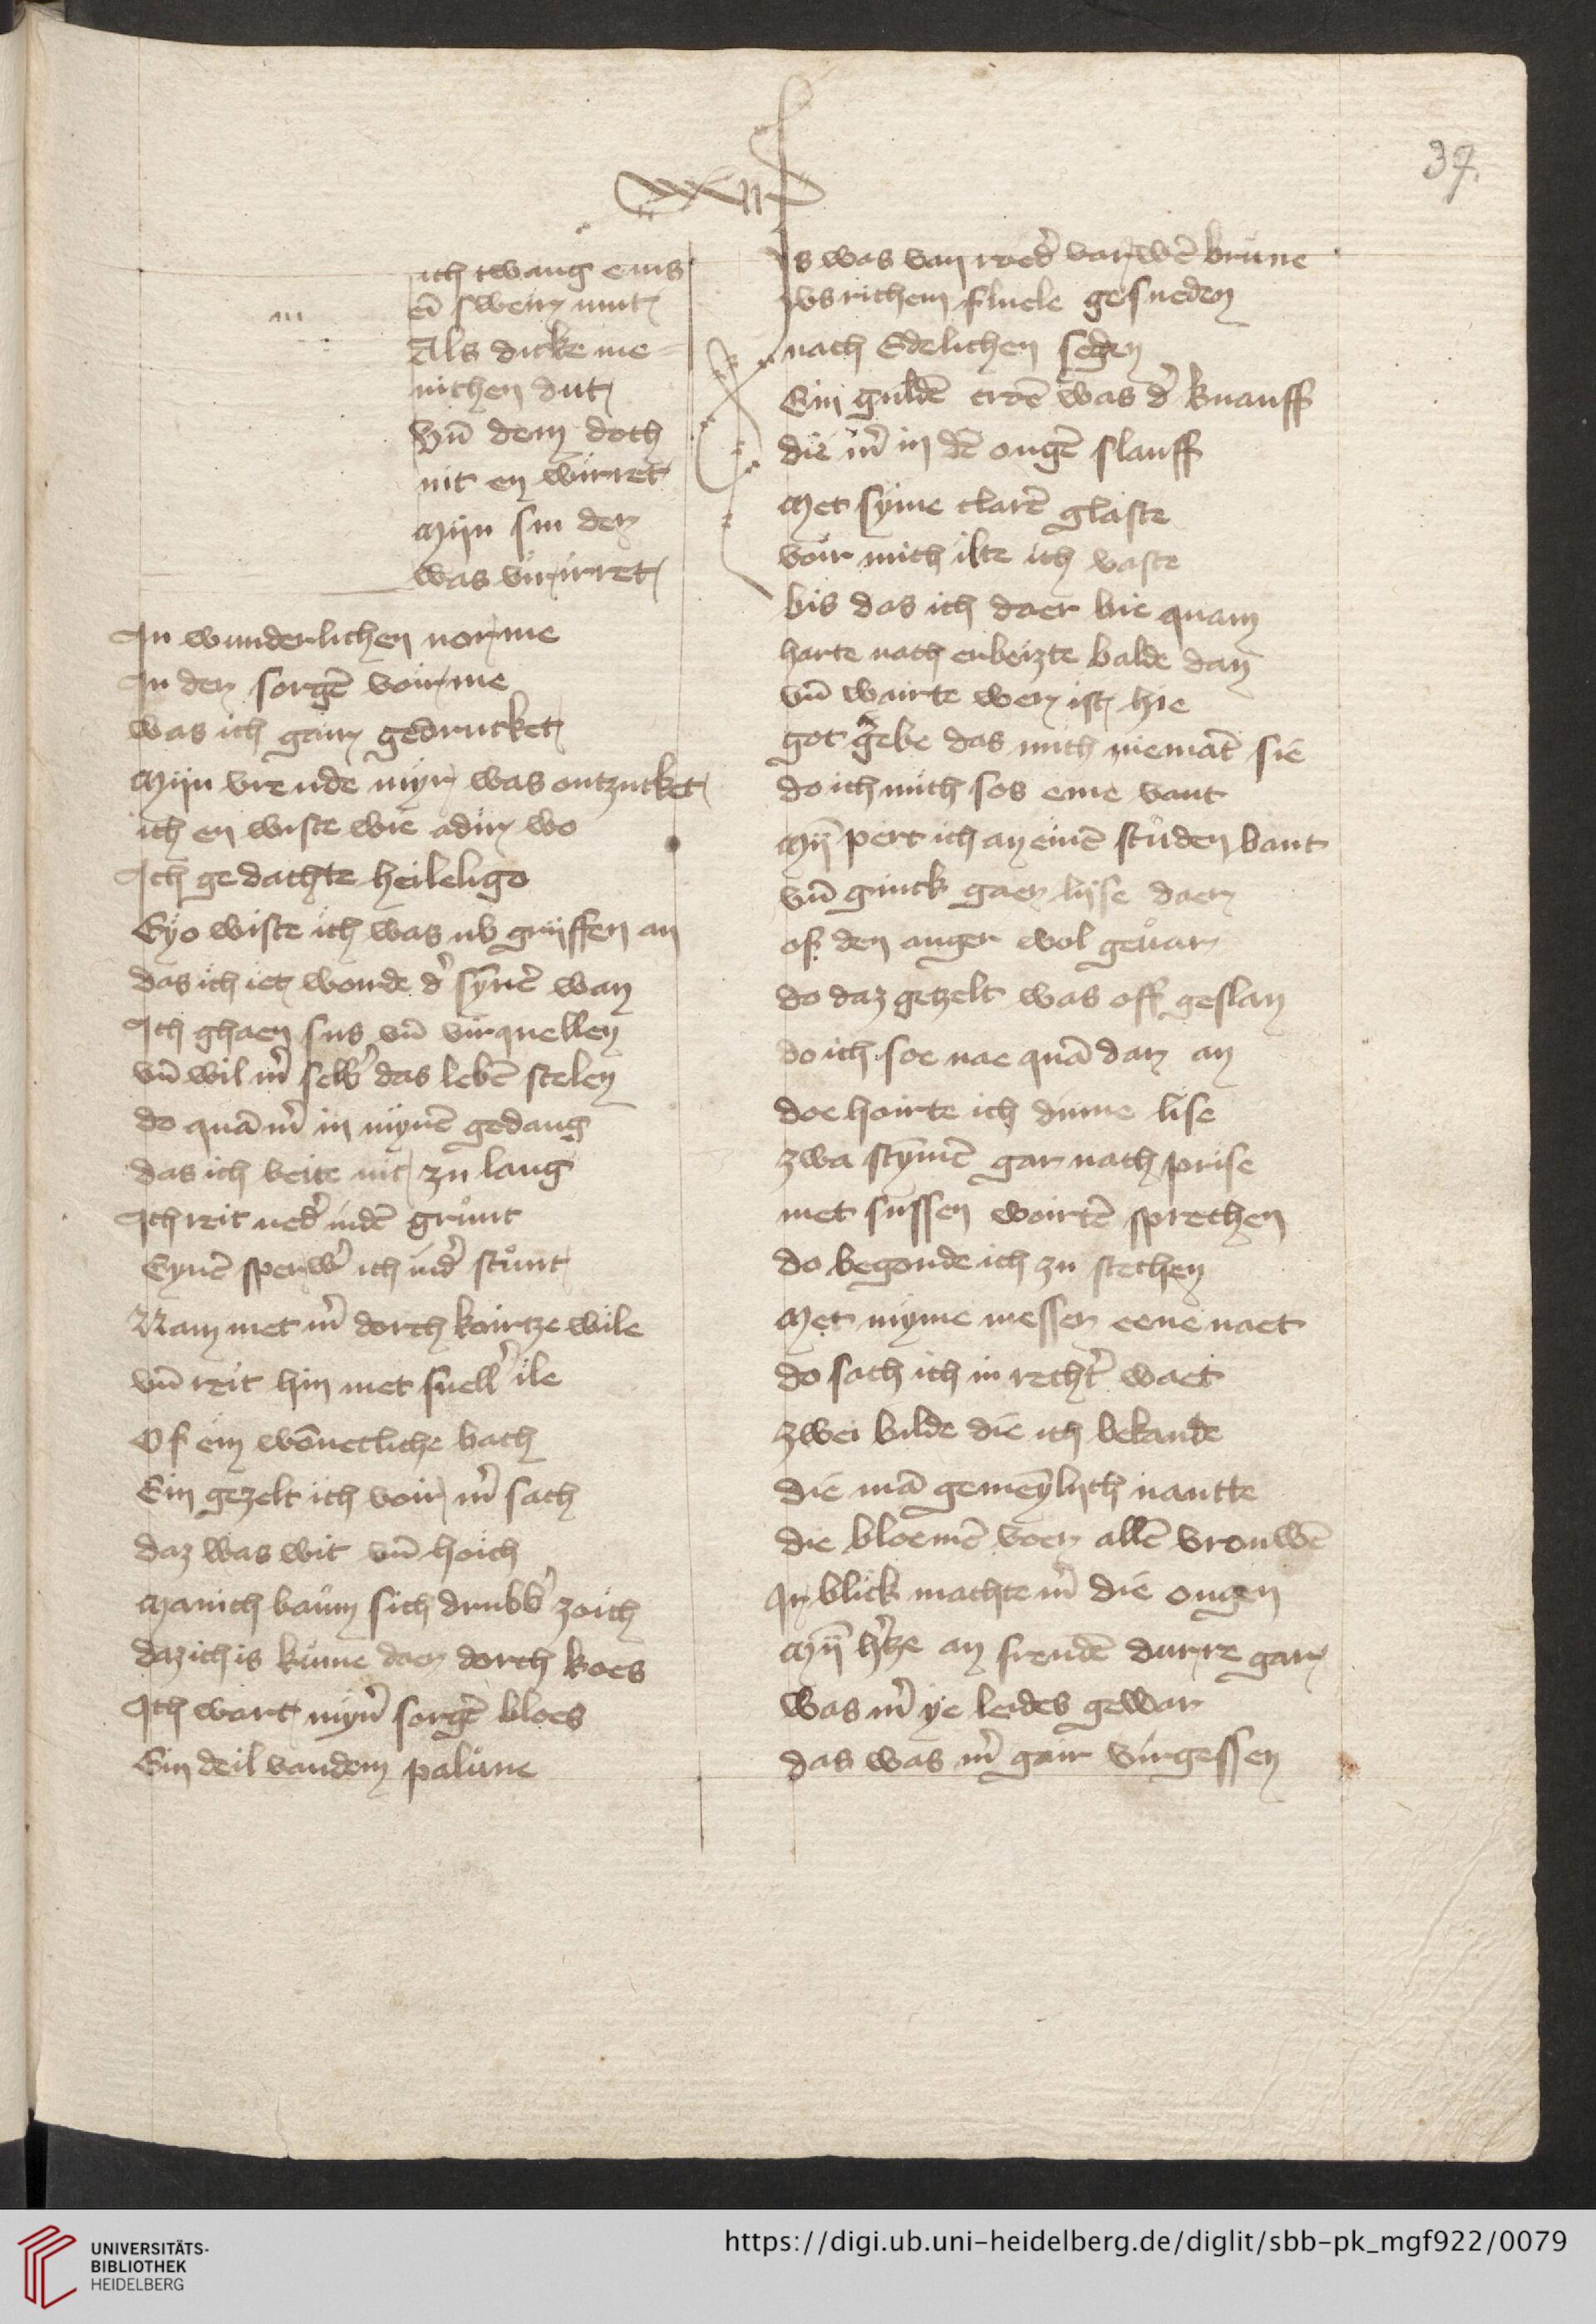 37.
xxxii
m
ich twang eins
eī sweirꝫ mut
Als dicke me=
nichen dut
Vn̄ dem doch
nit en wurret
Mijn sin der
was vurirret
In wunderlichen norme
In der sorgē voirme
was ich gair gedrucket
Mijn vreude myr was ontzucket
ich en wiste wie adir wo
Ich gedachte heileligo
Eyo wiste ich was nv gryffen an
das ich iet wonde dʾ synēr wan
Ich ghaen sus vn̄ vurquellen
vn̄ wil mʾ selbʾ das lebē stelen
do quā mʾ in mynē gedang
das ich beite nit zu lang
Ich reit nedʾ indē grůnt
Eynē sperwʾ ich indʾ stůnt
Nam met mʾ dorch koirtze wile
vn̄ reit hin met snellʾ ile
Of ein wōnetliche bach
Ein gezelt ich voir mʾ sach
daz was wit vn̄ hoich
Manich baům sich drubbʾ zoich
daz ich is kume daer dorch koes
Ich wart mynʾ sorgē bloes
Ein deil vandem palune
Is was van roedʾ varwē brune
vs richem fluele gesneden
nach Edelichen seden
Ein guldē eroē was dʾ knauff
die mʾ in dē ougē slauff
Met syme clarē glaste
voir mich ilte ich vaste
bis das ich daer bie quam
harte nach enbeizte balde dan
vn̄ wairte wer ist hie
got gebe das mich niemāt sie
do ich mich sos eine vant
Myn̄ pert ich an einē stůden bant
vn̄ ginck gaer lijse daer
of den anger wol geůar
do daz getzelt was off geslan
do ich soe nae quā dar an
doe hoirte ich dinne lise
zwa stȳmē gar nach prise
met sussen woirtē sprechen
do begonde ich zu stechen
Met myme messer eene naet
do sach ich in rechtʾ waet
zwei bilde die ich bekande
die mā gemeȳlich nantte
die bloemē voer allē vrouwē
Ir blick machte mʾ die ougen
Myn̄ hʾtze an freudē durre gar
was mʾ ye leides gewar
das was mʾ gair vurgessen
UNIVERSITÄTS-
BIBLIOTHEK
HEIDELBERG
https://digi.ub.uni-heidelberg.de/diglit/sbb-pk_mgf922/0079